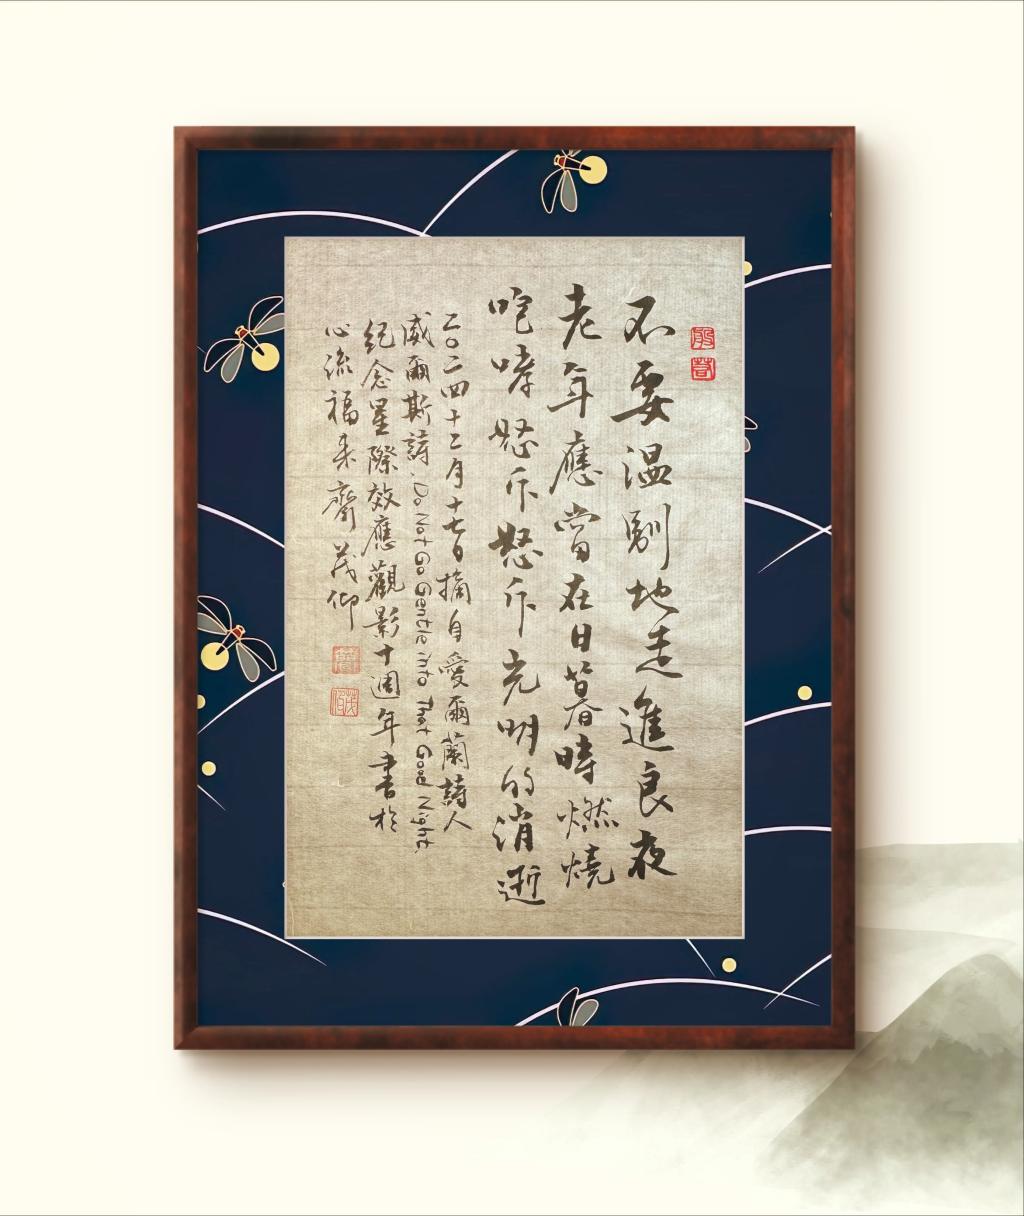 不要温馴地走進良夜
老年應當在日暮時燃燒
咆哮怒斥怒斥光明的消逝
二〇二四十二月十七日摘自愛爾蘭詩人
威爾斯詩.Do Not Go Gentle into That Good Night.
紀念星際效應觀影十週年書於
心流福来齋茂仰